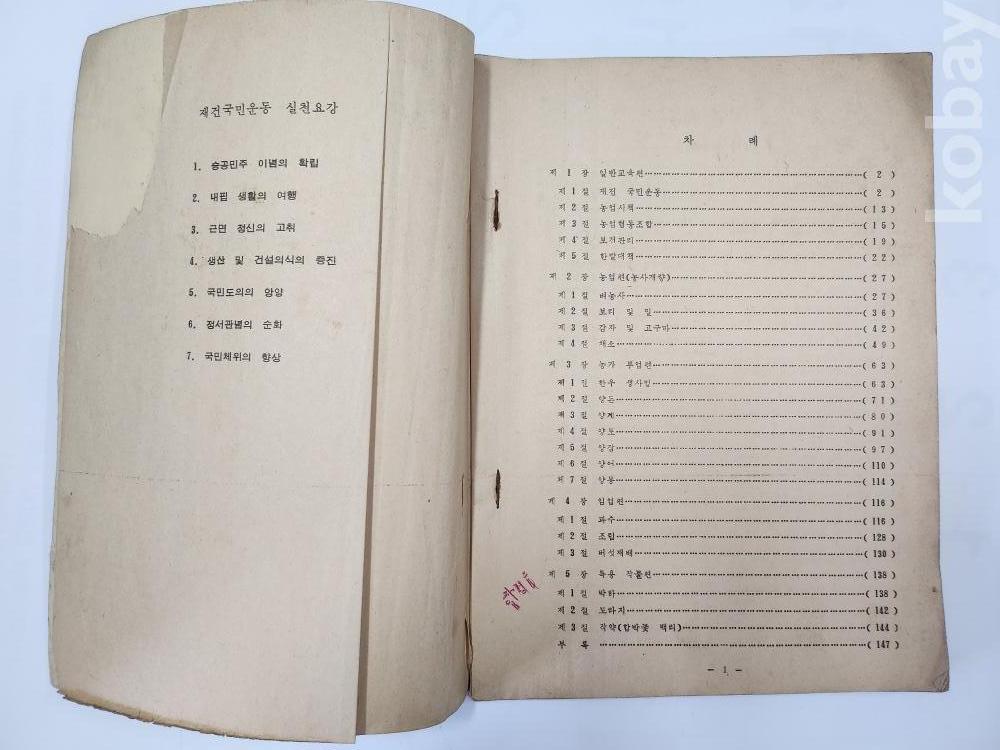 재건국민운동 실천요강
1. 승공민주 이념의 확립
2. 내핍 생활의 여행
3. 근면 정신의 고취
4. 생산 및 건설의식의 증진
5. 국민도의의 앙양
6. 정서관념의 순화
7. 국민체위의 향상
차 례
제 1 장 일반교육편……………( 2 )
제 1 절 재건 국민운동……………( 2 )
제 2 절 농업시책……………( 13 )
제 3 절 농업협동조합……………( 15 )
제 4 절 보건관리……………( 19 )
제 5 절 한발대책……………( 22 )
제 2 장 농업편(농사개량)……………( 27 )
제 1 절 벼농사……………( 27 )
제 2 절 보리 및 밀……………( 36 )
제 3 절 감자 및 고구마……………( 42 )
제 4 절 채소……………( 49 )
제 3 장 농가 부업편……………( 63 )
제 1 절 한우 생사법……………( 63 )
제 2 절 양돈……………( 71 )
제 3 절 양계……………( 80 )
제 4 절 양토……………( 91 )
제 5 절 양잠……………( 97 )
제 6 절 양어……………( 110 )
제 7 절 양봉……………( 114 )
제 4 장 임업편……………( 116 )
제 1 절 과수……………( 116 )
제 2 절 조림……………( 128 )
제 3 절 버섯재배……………( 130 )
제 5 장 특용 작물편……………( 138 )
제 1 절 박하……………( 138 )
제 2 절 도라지……………( 142 )
제 3 절 작약(함박꽃 뿌리)……………( 144 )
부 록……………( 147 )
— 1 —
kobay